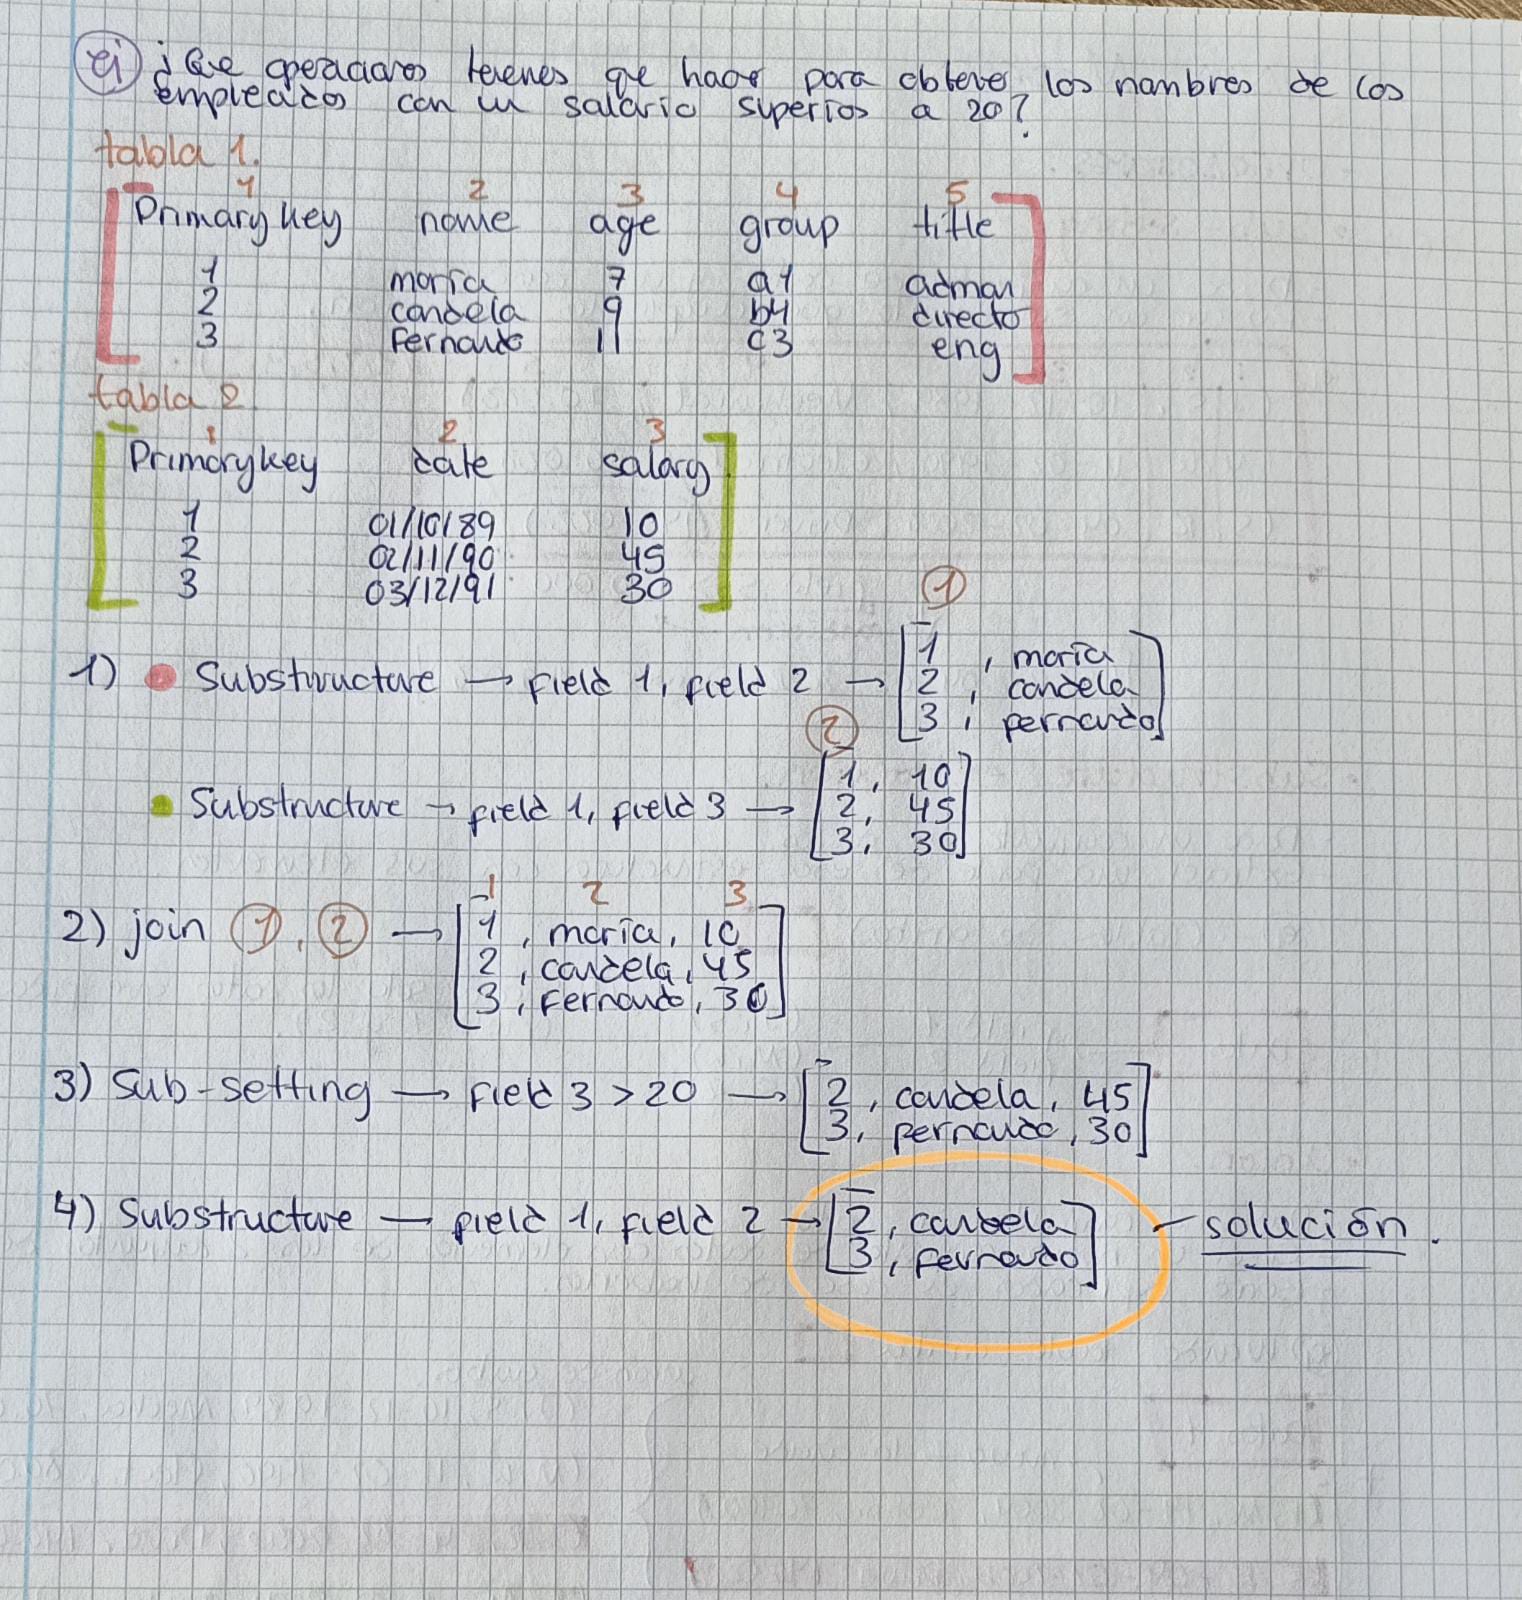 ej ¿Que operaciones tenemos que hacer para obtener los nombres de los
empleados con un salario superior a 20?
tabla 1.
1 2 3 4 5
Primary key name age group title
1 maría 7 a1 adman
2 candela 9 b4 directo
3 Fernando 11 c3 eng
tabla 2
1 2 3
Primary key date salary
1 01/10/89 10
2 02/11/90 45
3 03/12/91 30
1
1) Substructure → field 1, field 2 → 1, maría
2, candela
3, fernando
2
Substructure → field 1, field 3 → 1, 10
2, 45
3, 30
1 2 3
2) join 1, 2 → 1, maría, 10
2, candela, 45
3, Fernando, 30
3) Sub-setting → Field 3 > 20 → 2, candela, 45
3, fernando, 30
4) Substructure — field 1, field 2 → 2, candela - solución.
3, fernando